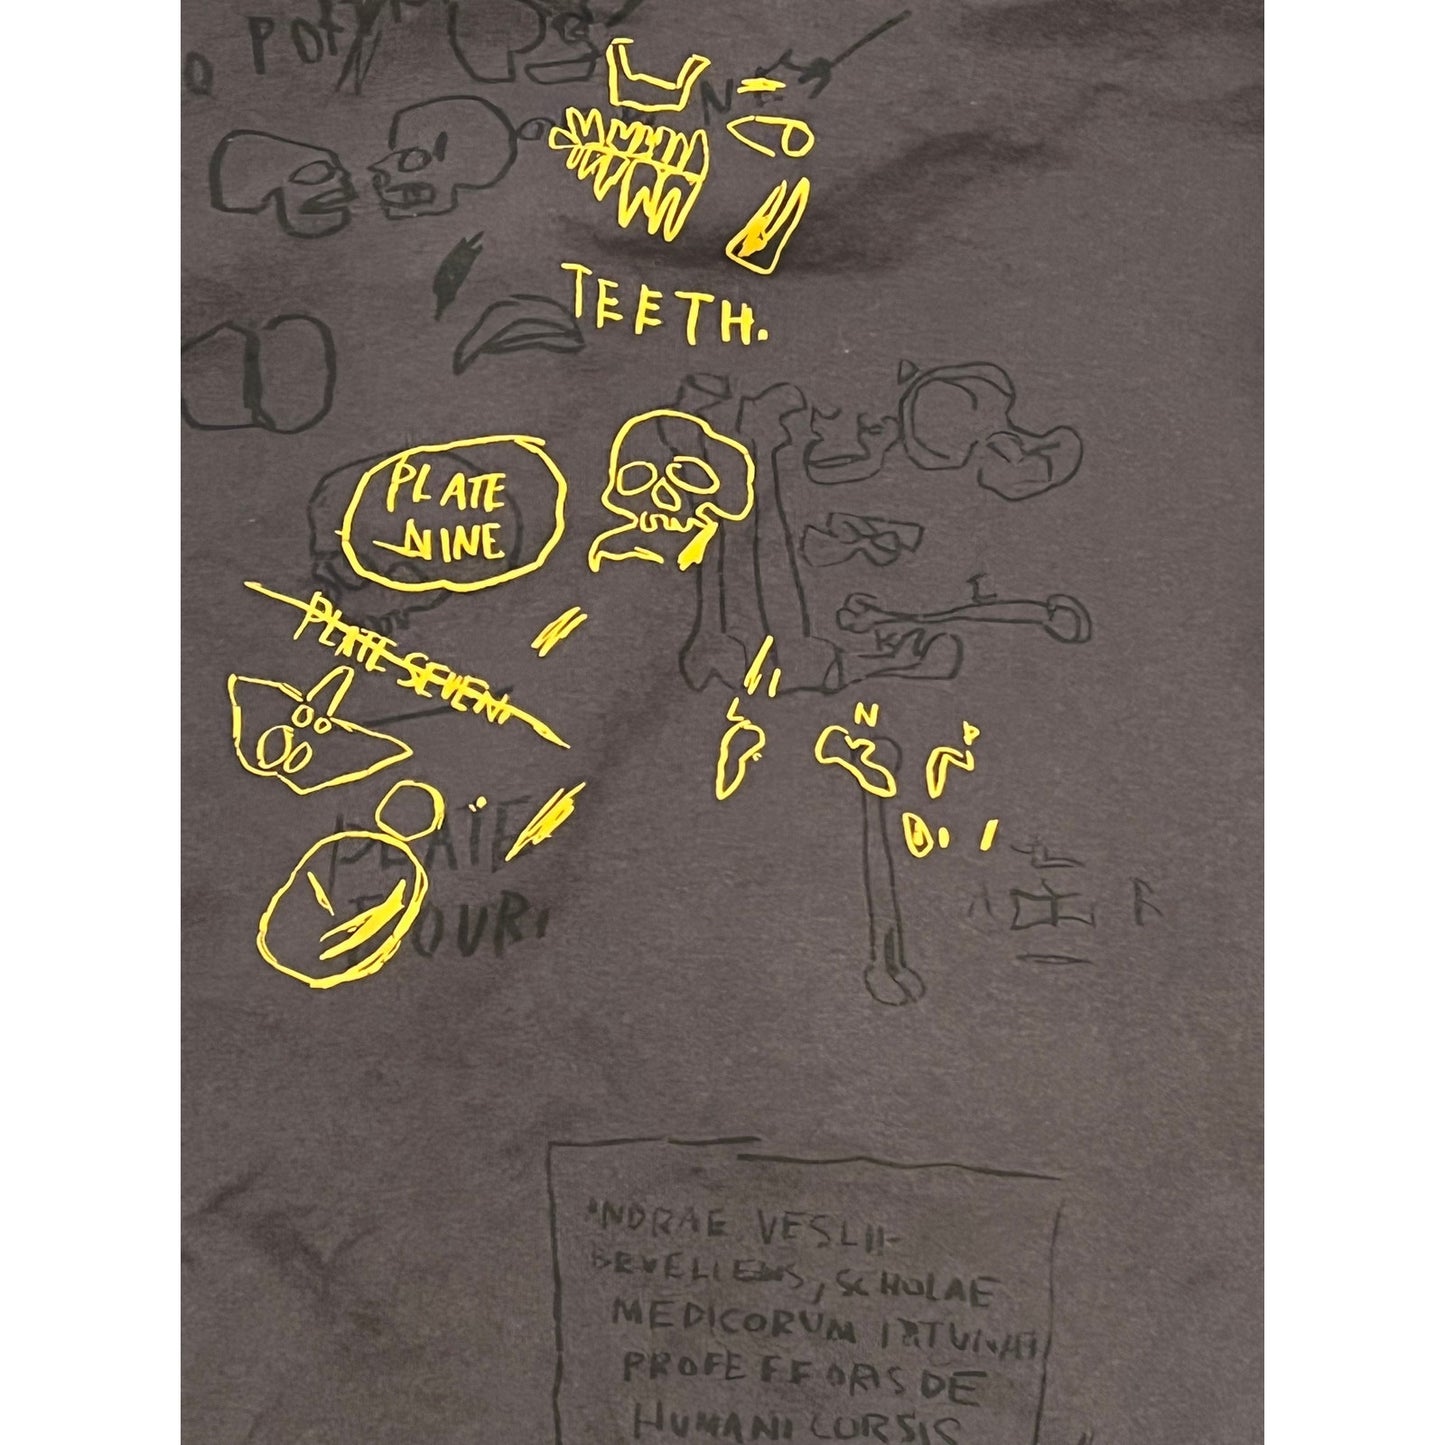 TEETH.
PLATE
NINE
PLATE SEVEN
L
N
PLATE
FOUR.
ANDRAE VESLII
BRVELLENS, SCHOLAE
MEDICORUM
PROFEFFORIS DE
HUMANI CORSIS